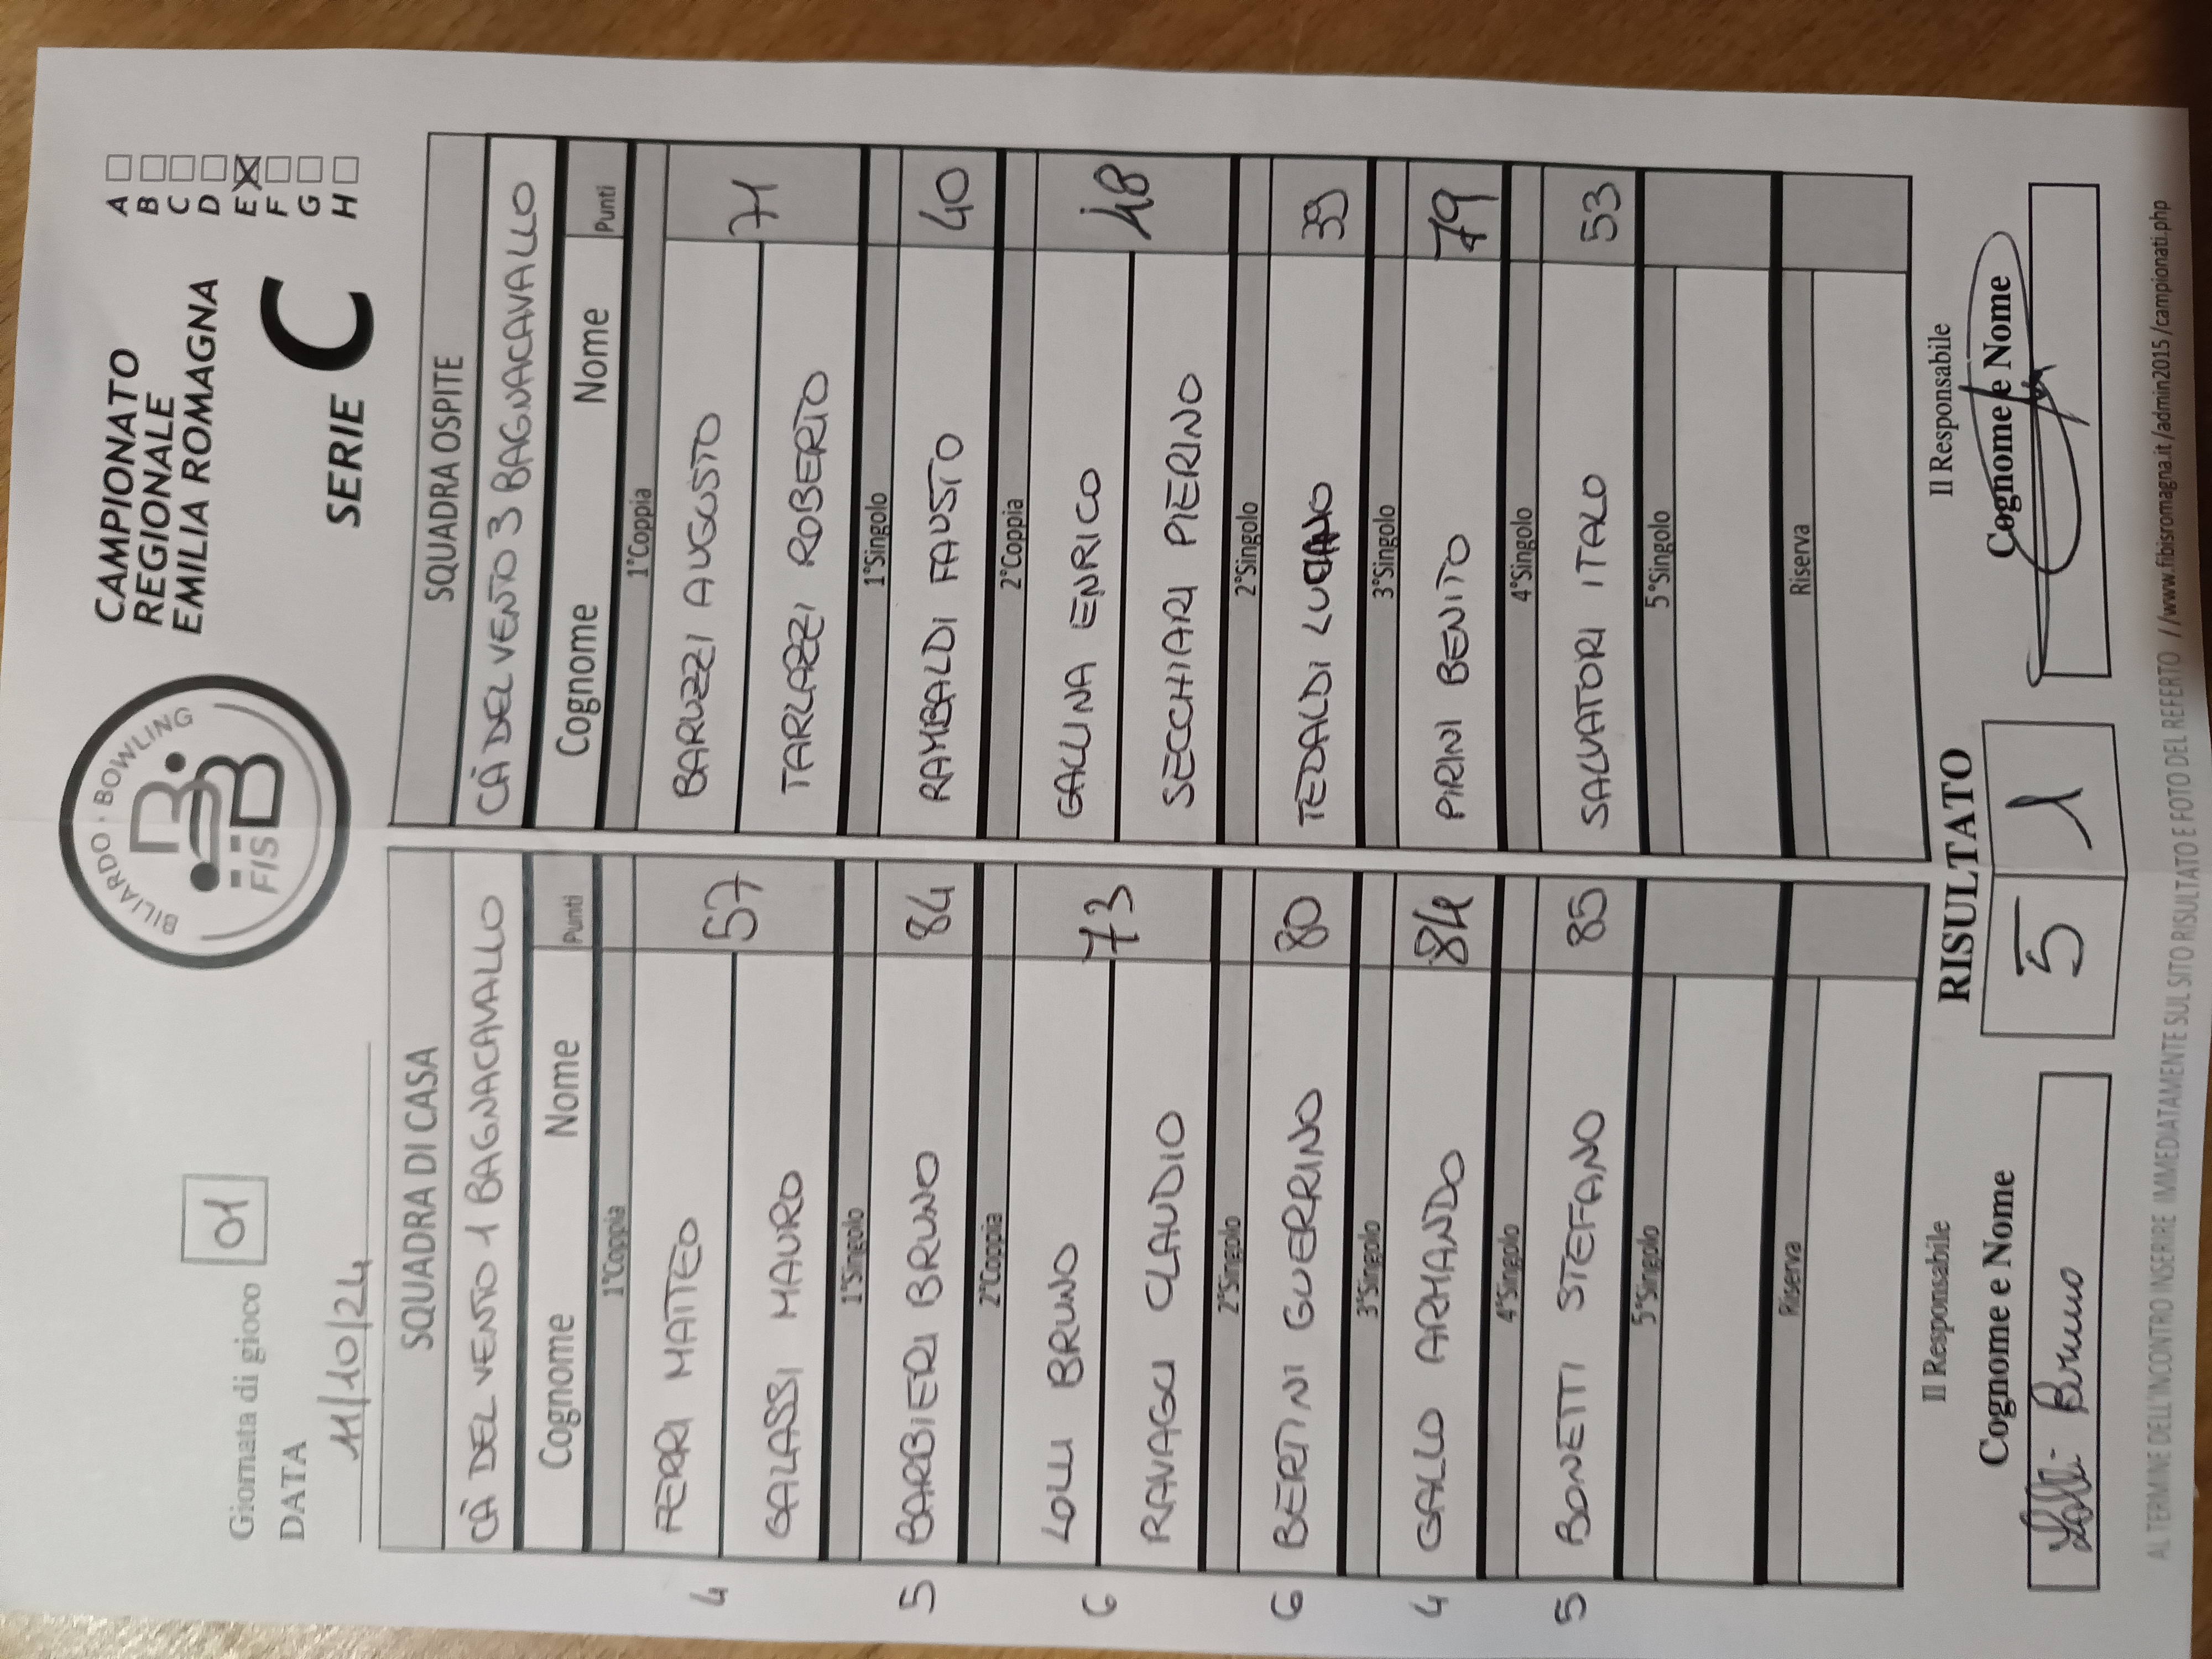 Giornata di gioco 01
DATA
11/10/24
BILIARDO · BOWLING
FISBB
CAMPIONATO
REGIONALE
EMILIA ROMAGNA
SERIE C
A
B
C
D
E X
F
G
H
SQUADRA DI CASA SQUADRA OSPITE
CÀ DEL VENTO 1 BAGNACAVALLO CÀ DEL VENTO 3 BAGNACAVALLO
Cognome Nome Punti Cognome Nome Punti
1°Coppia 1°Coppia
FERRI MATTEO BARUZZI AUGUSTO
4 57 71
GALASSI MAURO TARLAZZI ROBERTO
1°Singolo 1°Singolo
5 BARBIERI BRUNO 84 RAMBALDI FAUSTO 40
2°Coppia 2°Coppia
LOLLI BRUNO GALLINA ENRICO
6 73 48
RAVAGLI CLAUDIO SECCHIARI PIERINO
2°Singolo 2°Singolo
6 BERTINI GUERRINO 80 TEDALDI LUCIANO 39
3°Singolo 3°Singolo
4 GALLO ARMANDO 84 PIRINI BENITO 79
4°Singolo 4°Singolo
5 BONETTI STEFANO 85 SALVATORI ITALO 53
5°Singolo 5°Singolo
Riserva Riserva
Il Responsabile RISULTATO Il Responsabile
Cognome e Nome 5 1 Cognome e Nome
Lolli Bruno
AL TERMINE DELL'INCONTRO INSERIRE IMMEDIATAMENTE SUL SITO RISULTATO E FOTO DEL REFERTO //www.fibisromagna.it/admin2015/campionati.php